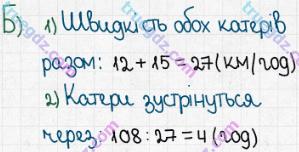 Б) 1) Швидкість обох катерів
разом: 12 + 15 = 27 (км/год)
2) Катери зустрінуться
через: 108 : 27 = 4 (год)